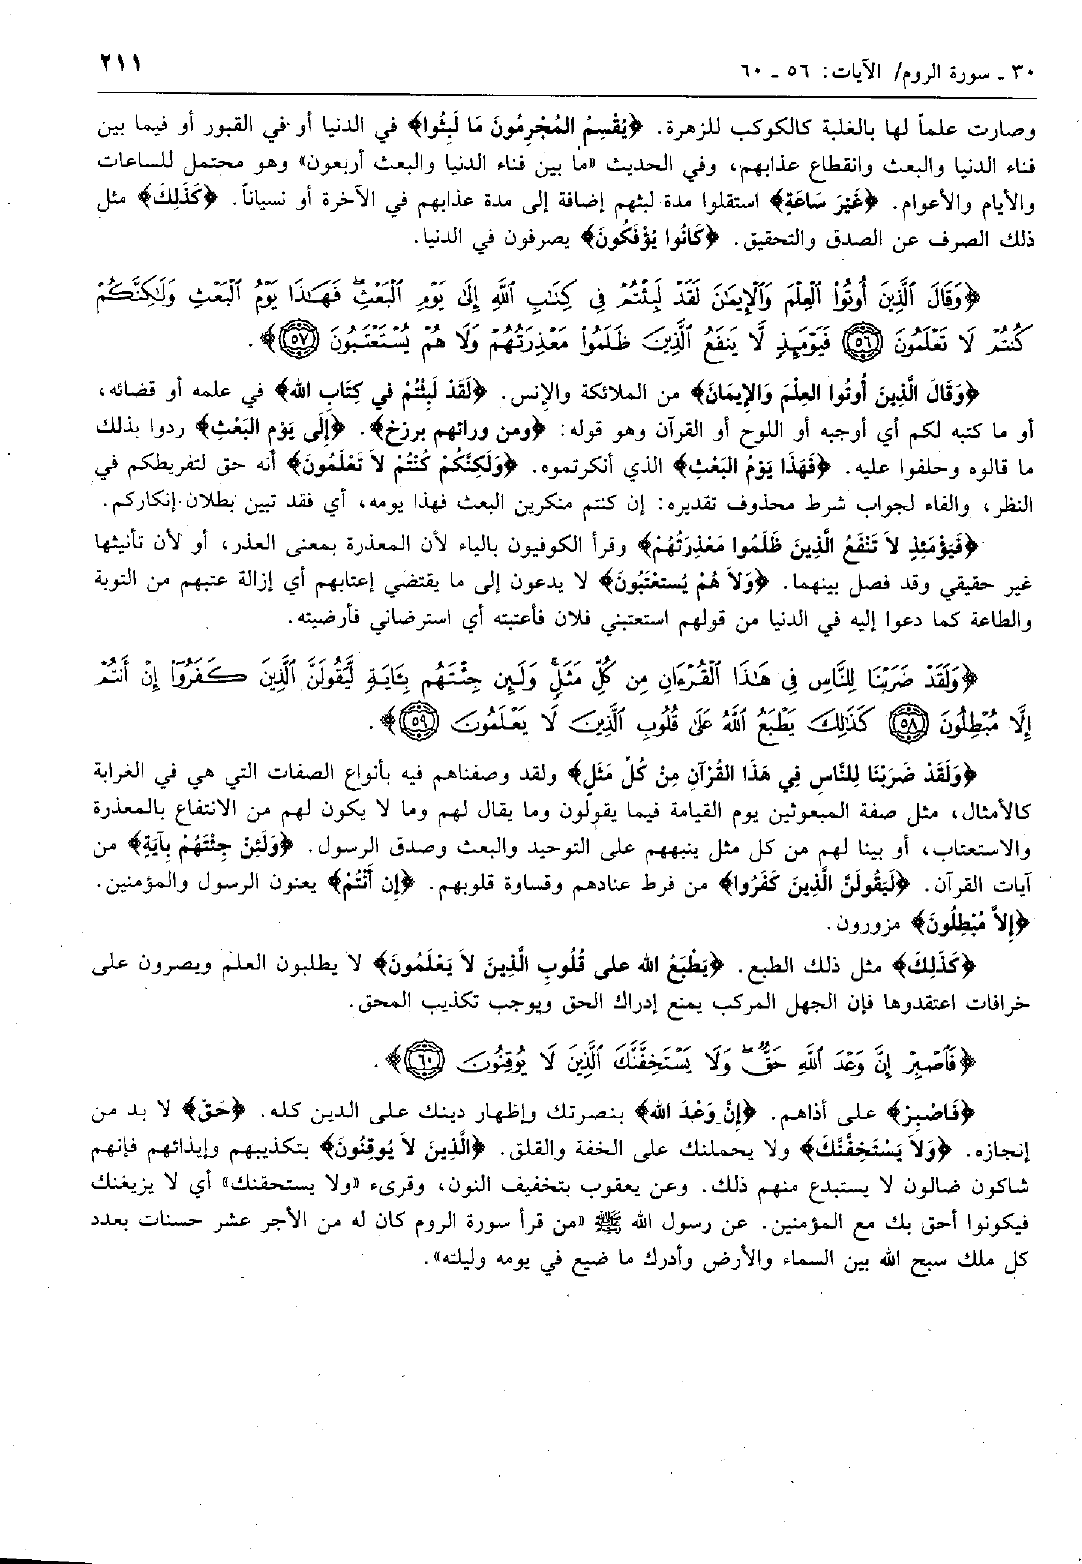 ٣٠ ـ سورة الروم/ الآيات: ٥٦ ـ ٦٠
٢١١
وصارت علماً لها بالغلبة كالكوكب للزهرة. ﴿يُقْسِمُ المُجْرِمُونَ مَا لَبِثُوا﴾ في الدنيا أو في القبور أو فيما بين
فناء الدنيا والبعث وانقطاع عذابهم، وفي الحديث «ما بين فناء الدنيا والبعث أربعون» وهو محتمل للساعات
والأيام والأعوام. ﴿غَيْرَ سَاعَةٍ﴾ استقلوا مدة لبثهم إضافة إلى مدة عذابهم في الآخرة أو نسياناً. ﴿كَذَلِكَ﴾ مثل
ذلك الصرف عن الصدق والتحقيق. ﴿كَانُوا يُؤْفَكُونَ﴾ يصرفون في الدنيا.
﴿وَقَالَ ٱلَّذِينَ أُوتُواْ ٱلْعِلْمَ وَٱلْإِيمَٰنَ لَقَدْ لَبِثْتُمْ فِي كِتَٰبِ ٱللَّهِ إِلَىٰ يَوْمِ ٱلْبَعْثِۖ فَهَٰذَا يَوْمُ ٱلْبَعْثِ وَلَٰكِنَّكُمْ
كُنتُمْ لَا تَعْلَمُونَ ٥٦ فَيَوْمَئِذٍ لَّا يَنفَعُ ٱلَّذِينَ ظَلَمُواْ مَعْذِرَتُهُمْ وَلَا هُمْ يُسْتَعْتَبُونَ ٥٧﴾.
﴿وَقَالَ الَّذِينَ أُوتُوا العِلْمَ وَالإِيمَانَ﴾ من الملائكة والإنس. ﴿لَقَدْ لَبِثْتُمْ في كِتَابِ الله﴾ في علمه أو قضائه،
أو ما كتبه لكم أي أوجبه أو اللوح أو القرآن وهو قوله: ﴿ومن ورائهم برزخ﴾. ﴿إِلَى يَوْمِ البَعْثِ﴾ ردوا بذلك
ما قالوه وحلفوا عليه. ﴿فَهَذَا يَوْمُ البَعْثِ﴾ الذي أنكرتموه. ﴿وَلَكِنَّكُمْ كُنْتُمْ لاَ تَعْلَمُونَ﴾ أنه حق لتفريطكم في
النظر، والفاء لجواب شرط محذوف تقديره: إن كنتم منكرين البعث فهذا يومه، أي فقد تبين بطلان إنكاركم.
﴿فَيَوْمَئِذٍ لاَ تَنْفَعُ الَّذِينَ ظَلَمُوا مَعْذِرَتُهُمْ﴾ وقرأ الكوفيون بالياء لأن المعذرة بمعنى العذر، أو لأن تأنيثها
غير حقيقي وقد فصل بينهما. ﴿وَلاَ هُمْ يُسْتَعْتَبُونَ﴾ لا يدعون إلى ما يقتضي إعتابهم أي إزالة عتبهم من التوبة
والطاعة كما دعوا إليه في الدنيا من قولهم استعتبني فلان فأعتبته أي استرضاني فأرضيته.
﴿وَلَقَدْ ضَرَبْنَا لِلنَّاسِ فِي هَٰذَا ٱلْقُرْءَانِ مِن كُلِّ مَثَلٍۚ وَلَئِن جِئْتَهُم بِـَٔايَةٍ لَّيَقُولَنَّ ٱلَّذِينَ كَفَرُوٓاْ إِنْ أَنتُمْ
إِلَّا مُبْطِلُونَ ٥٨ كَذَٰلِكَ يَطْبَعُ ٱللَّهُ عَلَىٰ قُلُوبِ ٱلَّذِينَ لَا يَعْلَمُونَ ٥٩﴾.
﴿وَلَقَدْ ضَرَبْنَا لِلنَّاسِ فِي هَذَا القُرْآنِ مِنْ كُلِّ مَثَلٍ﴾ ولقد وصفناهم فيه بأنواع الصفات التي هي في الغرابة
كالأمثال، مثل صفة المبعوثين يوم القيامة فيما يقولون وما يقال لهم وما لا يكون لهم من الانتفاع بالمعذرة
والاستعتاب، أو بينا لهم من كل مثل ينبههم على التوحيد والبعث وصدق الرسول. ﴿وَلَئِنْ جِئْتَهُمْ بِآيَةٍ﴾ من
آيات القرآن. ﴿لَيَقُولَنَّ الَّذِينَ كَفَرُوا﴾ من فرط عنادهم وقساوة قلوبهم. ﴿إِن أَنْتُمْ﴾ يعنون الرسول والمؤمنين.
﴿إِلاَّ مُبْطِلُونَ﴾ مزورون.
﴿كَذَلِكَ﴾ مثل ذلك الطبع. ﴿يَطْبَعُ الله على قُلُوبِ الَّذِينَ لاَ يَعْلَمُونَ﴾ لا يطلبون العلم ويصرون على
خرافات اعتقدوها فإن الجهل المركب يمنع إدراك الحق ويوجب تكذيب المحق.
﴿فَٱصْبِرْ إِنَّ وَعْدَ ٱللَّهِ حَقٌّۖ وَلَا يَسْتَخِفَّنَّكَ ٱلَّذِينَ لَا يُوقِنُونَ ٦٠﴾.
﴿فَاصْبِرْ﴾ على أذاهم. ﴿إِنَّ وَعْدَ الله﴾ بنصرتك وإظهار دينك على الدين كله. ﴿حَقّ﴾ لا بد من
إنجازه. ﴿وَلاَ يَسْتَخِفَّنَّكَ﴾ ولا يحملنك على الخفة والقلق. ﴿الَّذِينَ لاَ يُوقِنُونَ﴾ بتكذيبهم وإيذائهم فإنهم
شاكون ضالون لا يستبدع منهم ذلك. وعن يعقوب بتخفيف النون، وقرىء «ولا يستحقنك» أي لا يزيغنك
فيكونوا أحق بك مع المؤمنين. عن رسول الله ﷺ «من قرأ سورة الروم كان له من الأجر عشر حسنات بعدد
كل ملك سبح الله بين السماء والأرض وأدرك ما ضيع في يومه وليلته».